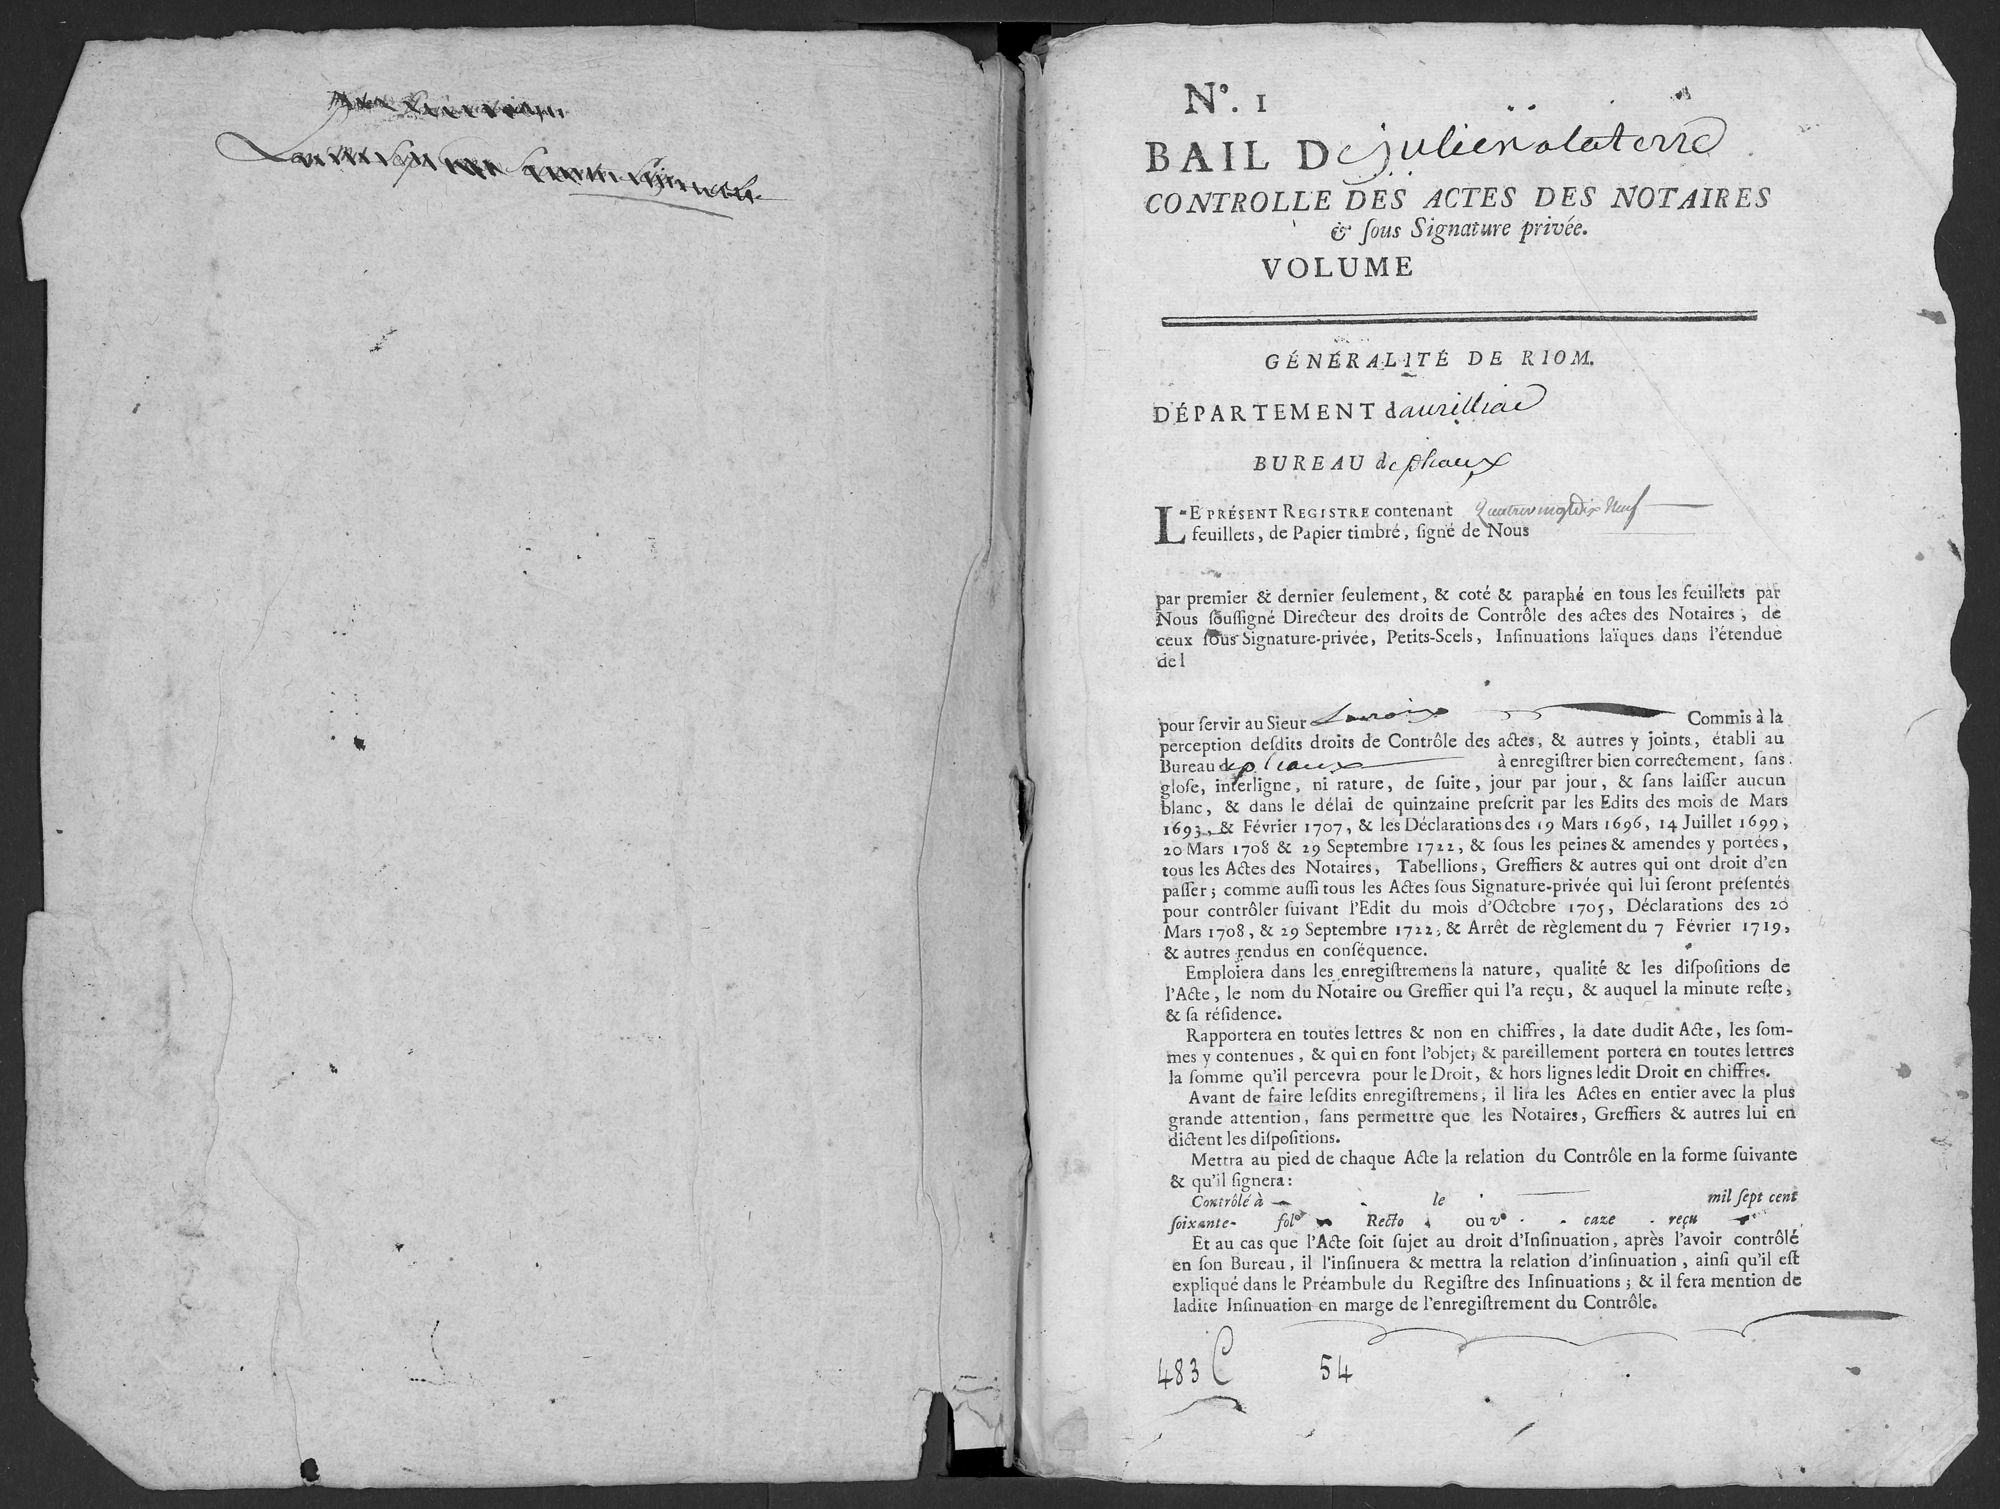 N°. 1
BAIL De julien alaterre
CONTROLLE DES ACTES DES NOTAIRES
& ſous Signature privée.
VOLUME
GÉNÉRALITÉ DE RIOM.
DÉPARTEMENT daurilliac
BUREAU de pleaux
LE PRÉSENT REGISTRE contenant Quatrevingtdix Neuf
feuillets, de Papier timbré, ſigné de Nous
par premier & dernier ſeulement, & coté & paraphé en tous les feuillets par
Nous ſouſſigné Directeur des droits de Contrôle des actes des Notaires, de
ceux ſous Signature-privée, Petits-Scels, Inſinuations laïques dans l'étendue
de l
pour ſervir au Sieur Commis à la
perception deſdits droits de Contrôle des actes, & autres y joints, établi au
Bureau de pleaux à enregiſtrer bien correctement, ſans
gloſe, interligne, ni rature, de ſuite, jour par jour, & ſans laiſſer aucun
blanc, & dans le délai de quinzaine preſcrit par les Edits des mois de Mars
1693, & Février 1707, & les Déclarations des 19 Mars 1696, 14 Juillet 1699,
20 Mars 1708 & 29 Septembre 1722, & ſous les peines & amendes y portées,
tous les Actes des Notaires, Tabellions, Greffiers & autres qui ont droit d'en
paſſer; comme auſſi tous les Actes ſous Signature-privée qui lui ſeront préſentés
pour contrôler ſuivant l'Edit du mois d'Octobre 1705, Déclarations des 20
Mars 1708, & 29 Septembre 1722, & Arrêt de règlement du 7 Février 1719,
& autres rendus en conſéquence.
Emploiera dans les enregiſtremens la nature, qualité & les diſpoſitions de
l'Acte, le nom du Notaire ou Greffier qui l'a reçu, & auquel la minute reſte,
& ſa réſidence.
Rapportera en toutes lettres & non en chiffres, la date dudit Acte, les ſom-
mes y contenues, & qui en font l'objet; & pareillement portera en toutes lettres
la ſomme qu'il percevra pour le Droit, & hors lignes ledit Droit en chiffres.
Avant de faire leſdits enregiſtremens, il lira les Actes en entier avec la plus
grande attention, ſans permettre que les Notaires, Greffiers & autres lui en
dictent les diſpoſitions.
Mettra au pied de chaque Acte la relation du Contrôle en la forme ſuivante
& qu'il ſignera:
Contrôlé à le mil ſept cent
ſoixante- fol° Recto ou v° caze reçu
Et au cas que l'Acte ſoit ſujet au droit d'Inſinuation, après l'avoir contrôlé
en ſon Bureau, il l'inſinuera & mettra la relation d'inſinuation, ainſi qu'il eſt
expliqué dans le Préambule du Regiſtre des Inſinuations; & il fera mention de
ladite Inſinuation en marge de l'enregiſtrement du Contrôle.
483 C 54